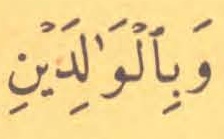 وَبِٱلْوَٰلِدَيْنِ